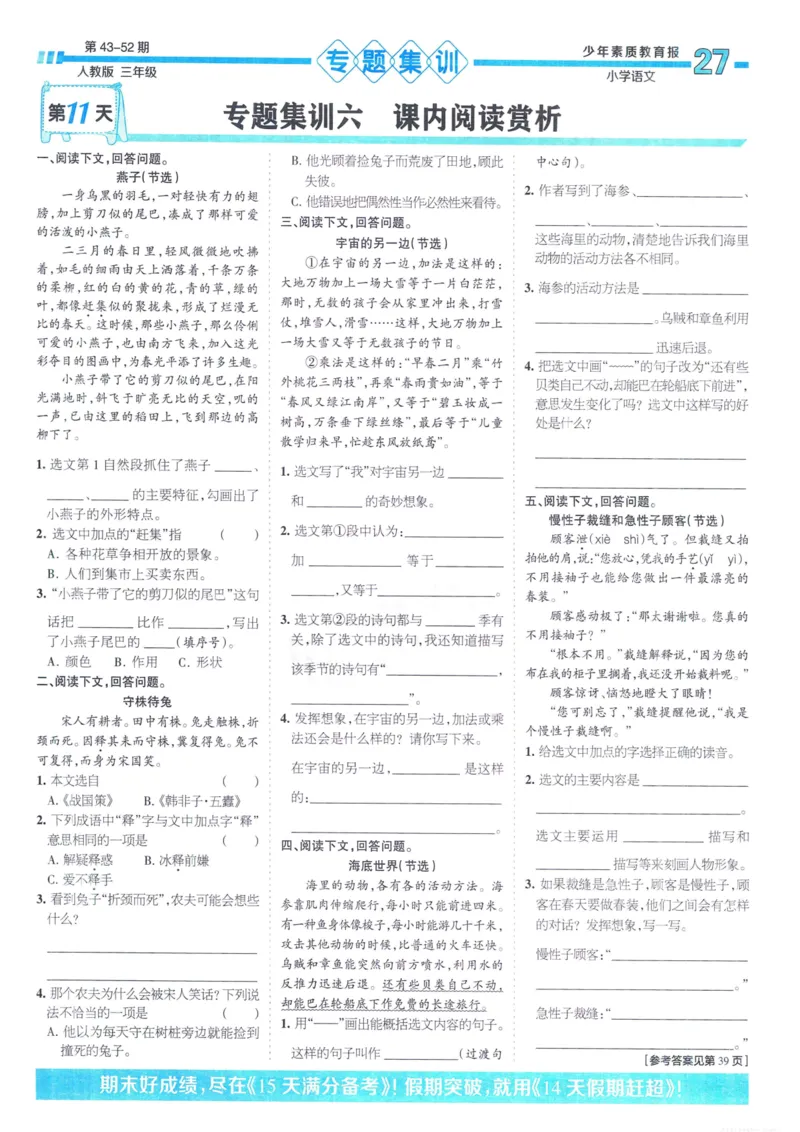 第 43-52 期
人教版 三年级
专题集训
少年素质教育报
小学语文
27
第11天
专题集训六 课内阅读赏析
一、阅读下文,回答问题。
燕子(节选)
一身乌黑的羽毛,一对轻快有力的翅
膀,加上剪刀似的尾巴,凑成了那样可爱
的活泼的小燕子。
二三月的春日里,轻风微微地吹拂
着,如毛的细雨由天上洒落着,千条万条
的柔柳,红的白的黄的花,青的草,绿的
叶,都像赶集似的聚拢来,形成了烂漫无
比的春天。这时候,那些小燕子,那么伶俐
可爱的小燕子,也由南方飞来,加入这光
彩夺目的图画中,为春光平添了许多生趣。
小燕子带了它的剪刀似的尾巴,在阳
光满地时,斜飞于旷亮无比的天空,叽的
一声,已由这里的稻田上,飞到那边的高
柳下了。
1. 选文第 1 自然段抓住了燕子 ______、
______、______ 的主要特征,勾画出了
小燕子的外形特点。
2. 选文中加点的“赶集”指 ( )
A. 各种花草争相开放的景象。
B. 人们到集市上买卖东西。
3. “小燕子带了它的剪刀似的尾巴”这句
话把 ________ 比作 ________,写出
了小燕子尾巴的 ____(填序号)。
A. 颜色 B. 作用 C. 形状
二、阅读下文,回答问题。
守株待兔
宋人有耕者。田中有株。兔走触株,折
颈而死。因释其耒而守株,冀复得兔。兔不
可复得,而身为宋国笑。
1. 本文选自 ( )
A.《战国策》 B.《韩非子·五蠹》
2. 下列成语中“释”字与文中加点字“释”
意思相同的一项是 ( )
A. 解疑释惑 B. 冰释前嫌
C. 爱不释手
3. 看到兔子“折颈而死”,农夫可能会想些
什么?
4. 那个农夫为什么会被宋人笑话?下列说
法不恰当的一项是 ( )
A. 他以为每天守在树桩旁边就能捡到
撞死的兔子。
B. 他光顾着捡兔子而荒废了田地,顾此
失彼。
C. 他错误地把偶然性当作必然性来看待。
三、阅读下文,回答问题。
宇宙的另一边(节选)
①在宇宙的另一边,加法是这样的:
大地万物加上一场大雪等于一片白茫茫,
那时,无数的孩子会从家里冲出来,打雪
仗,堆雪人,滑雪……这样,大地万物加上
一场大雪又等于无数孩子的节日。
②乘法是这样的:“早春二月”乘“竹
外桃花三两枝”,再乘“春雨贵如油”,等于
“春风又绿江南岸”,又等于“碧玉妆成一
树高,万条垂下绿丝绦”,最后等于“儿童
散学归来早,忙趁东风放纸鸢”。
1. 选文写了“我”对宇宙另一边 ________
和 ________ 的奇妙想象。
2. 选文第①段中认为:______________
加 ____________ 等于 __________
______,又等于________________。
3. 选文第②段的诗句都与 ________ 季有
关,除了选文中的诗句,我还知道描写
该季节的诗句有“________________,
________________”。
4. 发挥想象,在宇宙的另一边,加法或乘
法还会是什么样的?请你写下来。
在宇宙的另一边,__________ 是这样
的:____________________________
______________________________。
四、阅读下文,回答问题。
海底世界(节选)
海里的动物,各有各的活动方法。海
参靠肌肉伸缩爬行,每小时只能前进四米。
有一种鱼身体像梭子,每小时能游几十千米,
攻击其他动物的时候,比普通的火车还快。
乌贼和章鱼能突然向前方喷水,利用水的
反推力迅速后退。还有些贝类自己不动,
却能巴在轮船底下作免费的长途旅行。
1. 用“——”画出能概括选文内容的句子。
这样的句子叫作 __________(过渡句
中心句)。
2. 作者写到了海参、________________、
________、________、____________
这些海里的动物,清楚地告诉我们海里
动物的活动方法各不相同。
3. 海参的活动方法是 ______________
________________。乌贼和章鱼利用
________________ 迅速后退。
4. 把选文中画“——”的句子改为“还有些
贝类自己不动,却能巴在轮船底下前进”,
意思发生变化了吗?选文中这样写的好
处是什么?
五、阅读下文,回答问题。
慢性子裁缝和急性子顾客(节选)
顾客泄(xiè shì)气了。但裁缝又拍
拍他的肩,说:“您放心,凭我的手艺(yǐ yì),
不用接袖子也能给您做出一件最漂亮的
春装。”
顾客感动极了:“那太谢谢啦。您真的
不用接袖子?”
“根本不用。”裁缝解释说,“因为您的
布在我的柜子里搁着,我还没开始裁料呢。”
顾客惊讶、恼怒地瞪大了眼睛!
“您可别忘了,”裁缝提醒他说,“我是
个慢性子裁缝啊。”
1. 给选文中加点的字选择正确的读音。
2. 选文的主要内容是 ______________
______________________________。
选文主要运用 ____________ 描写和
____________ 描写等来刻画人物形象。
3. 如果裁缝是急性子,顾客是慢性子,顾
客在春天要做春装,他们之间会有怎样
的对话?发挥想象,写一写。
慢性子顾客:“____________________
______________________________。”
急性子裁缝:“____________________
______________________________。”
[参考答案见第 39 页]
期末好成绩,尽在《15 天满分备考》!假期突破,就用《14 天假期赶超》!